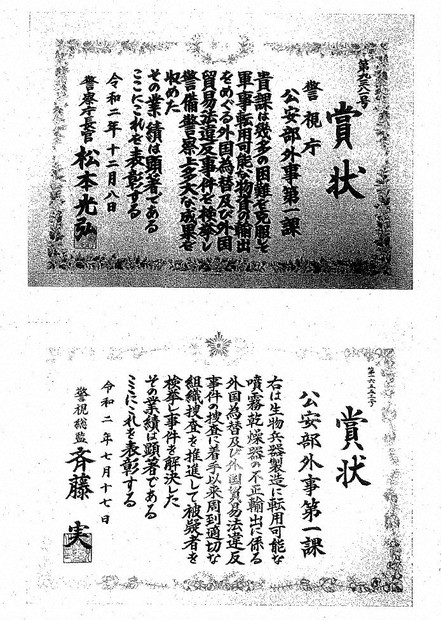 賞状
警視庁
公安部外事第一課
貴課は幾多の困難を克服し
軍事転用可能な物資の輸出
をめぐる外国為替及び外国
貿易法違反事件を検挙し
警備警察上多大な成果を
収めた
その業績は顕著である
ここにこれを表彰する
令和二年十二月八日
警察庁長官 松本光弘
賞状
公安部外事第一課
右は生物兵器製造に転用可能な
噴霧乾燥器の不正輸出に係る
外国為替及び外国貿易法違反
事件の捜査に着手以来周到適切な
組織捜査を推進して被疑者を
検挙し事件を解決した
その業績は顕著である
ここにこれを表彰する
令和二年七月十七日
警視総監 斉藤 実